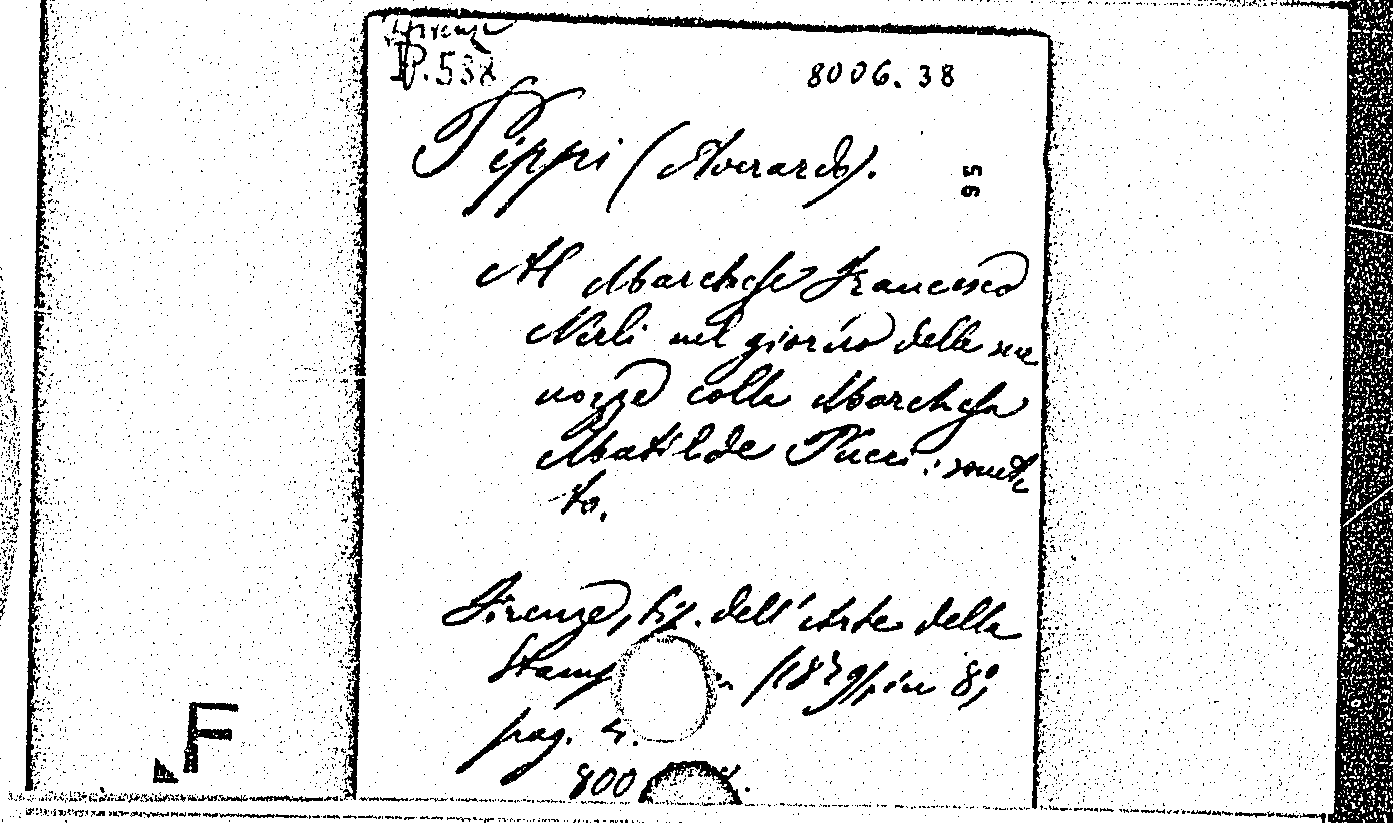 Firenze
P.538
8006. 38
Pippi (Averardo).
95
Al Marchese Francesco
Nerli nel giorno delle sue
nozze colla Marchesa
Matilde Pucci: sonet-
to.
Firenze, tip. dell'Arte della
Stamp /1879/, in 8°,
pag. 4.
800
F